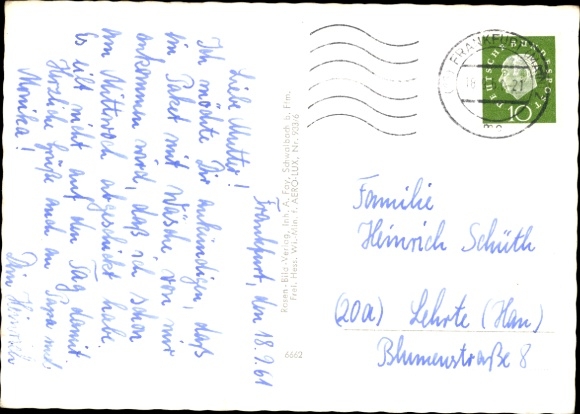 Frankfurt, den 18.9.61
Liebe Mutter!
Ich möchte Dir ankündigen, daß
ein Paket mit Wäsche von mir
ankommen wird, daß ich schon
am Mittwoch abgeschickt habe.
Es eilt nicht auf den Tag damit
Herzliche Grüße auch an Papa und
Monika!
Dein Heinrich
Rosen-Bild-Verlag, Inh. A. Fay, Schwalbach b. Ffm.
Frei. Hess. Wi.-Min. f. AERO-LUX, Nr. 933/6
6662
FRANKFURT
DEUTSCHE BUNDESPOST
10
Familie
Heinrich Schüth
(20a) Lehrte (Han)
Blumenstraße 8